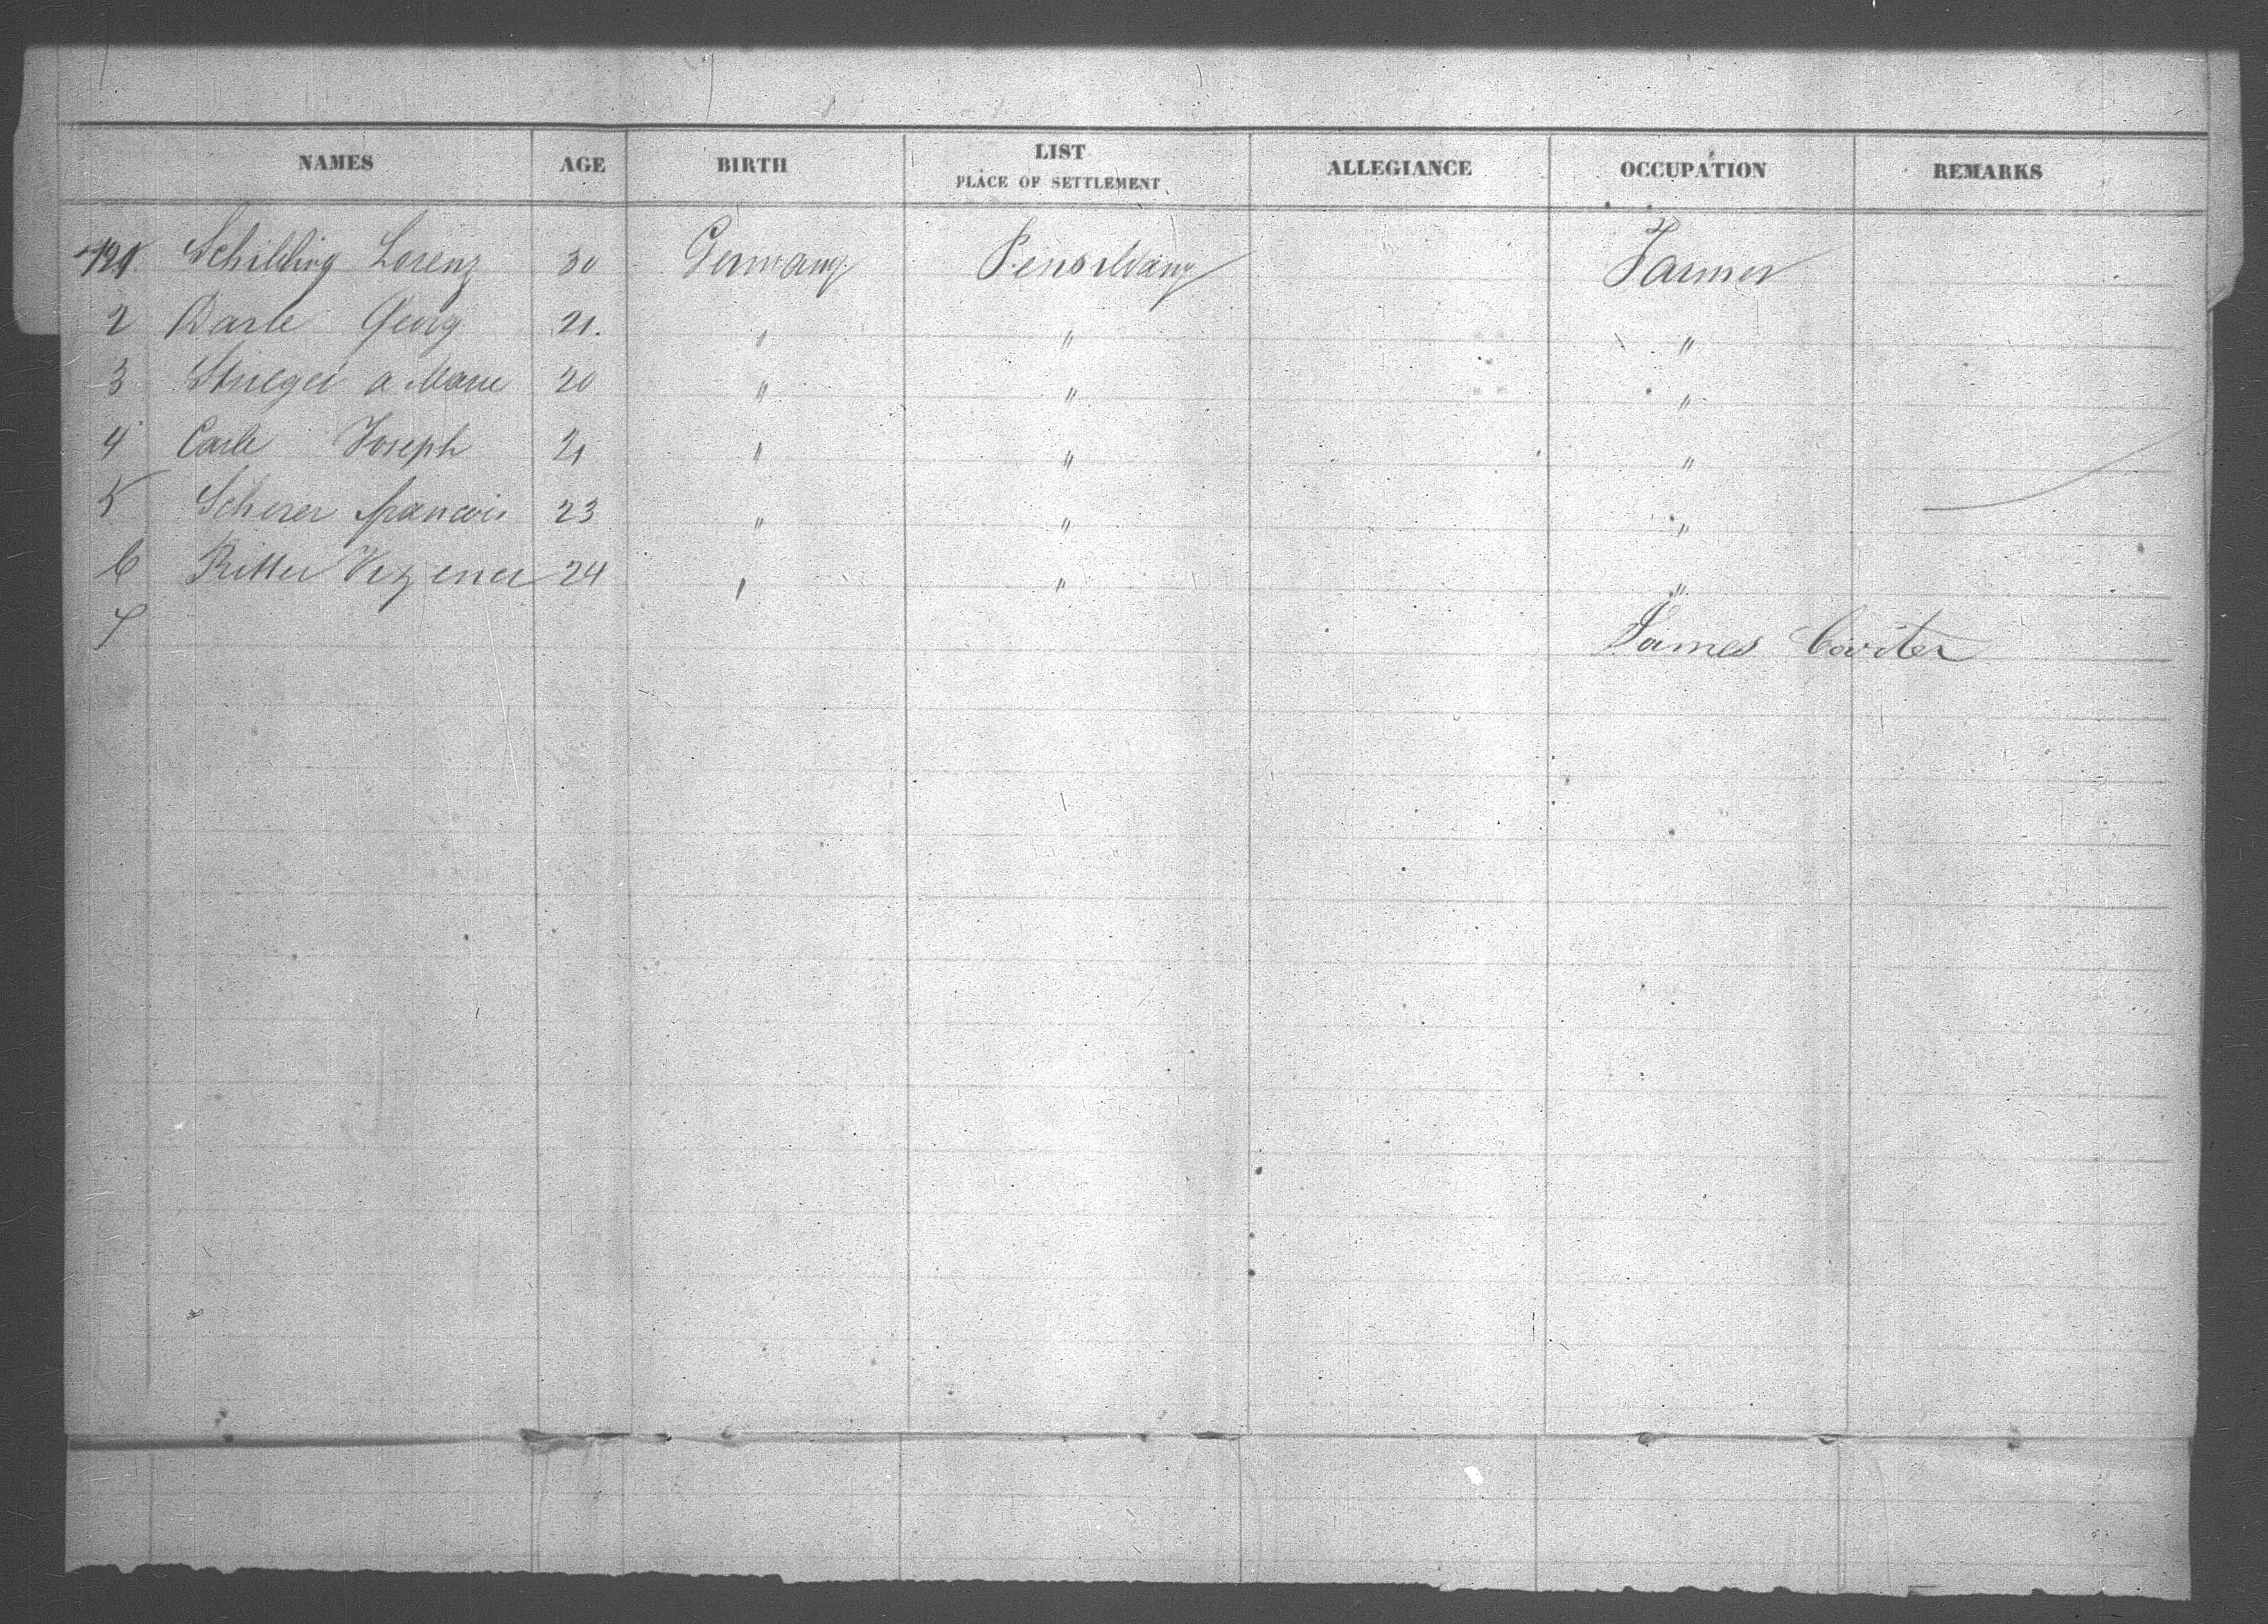 NAMES AGE BIRTH LIST PLACE OF SETTLEMENT ALLEGIANCE OCCUPATION REMARKS
Schilling Lorenz 30 Germany Farmer
2 Georg 21. " " "
3 a Marie 20 " " "
4 Carle Joseph 21 " " "
5 Scherer francois 23 " " "
6 Ritter 24 " " "
7 James Carter